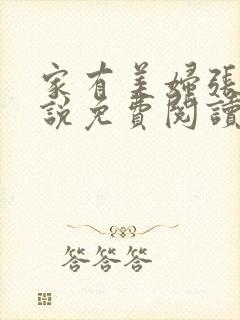 家有美婦張
說免費閱讀
答答答